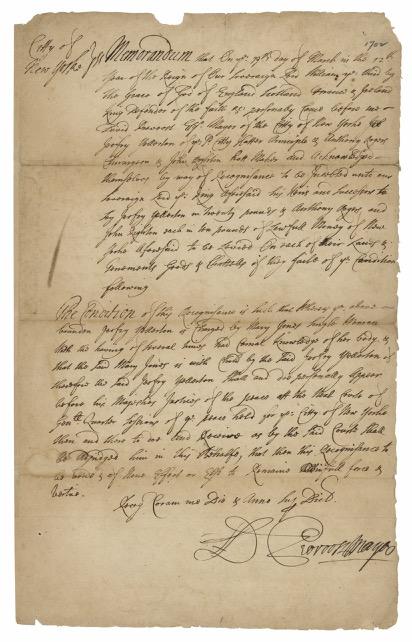 1702
Citty of
New Yorke } ss Memorandum that on ye 19th day of March in the 12th
year of the Reign of Our Sovereign Lord William ye third by
the Grace of God of England Scotland France & Ireland
King Defender of the faith &c personally came before me
David Provoost Esqr Mayor of the Citty of New Yorke
Jeofry Yellerton of ye sd Citty Principle & Anthony
Chyrurgeon & John and Acknowledge
themselves by way of Recognizance to be Indebted unto our
Sovereign Lord ye King aforesaid his Heirs and Successors the
sd Jeofry Yellerton in twenty pounds & Anthony and
John each in ten pounds of Lawfull Money of New
Yorke aforesaid to be Levied On each of their Lands &
Tenements Goods & Chattells if they faile of ye Condition
following
The Condition of this Recognizance is such that Whereas ye above
bounden Jeofry Yellerton is Charged by Mary Jones Single Woman
with the having of severall times had Carnal Knowledge of her body &
that the said Mary Jones is with Child by the said Jeofry Yellerton if
therefore the said Jeofry Yellerton Shall and do personally Appear
before his Majesties Justices of the peace att the next Courts of
Genll Quarter Sessions of ye peace held for ye Citty of New Yorke
then and there to do and Receive as by the said Court shall
be Adjudged him in this Behalfe, that then this Recognizance to
be void & of None Effect or Else to Remaine in full force &
Vertue.
Coram me Die & Anno
D Provoost Mayor